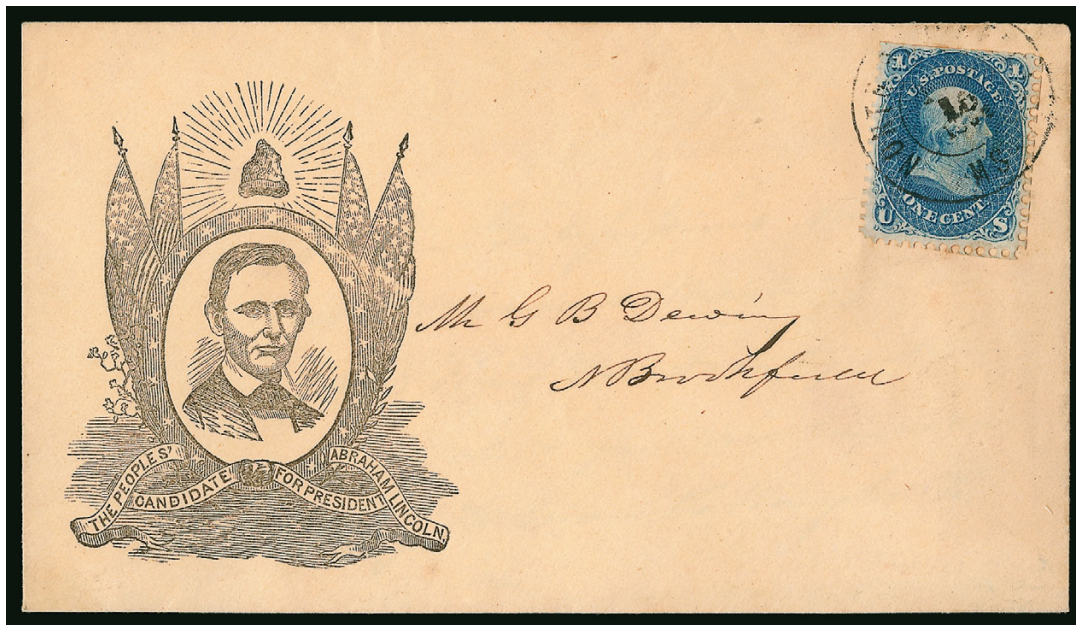 1 1
U.S. POSTAGE
ONE CENT.
U S
18
MS
Mr G B Dewing
N Brookfield
THE PEOPLES'
CANDIDATE
FOR PRESIDENT
ABRAHAM LINCOLN.